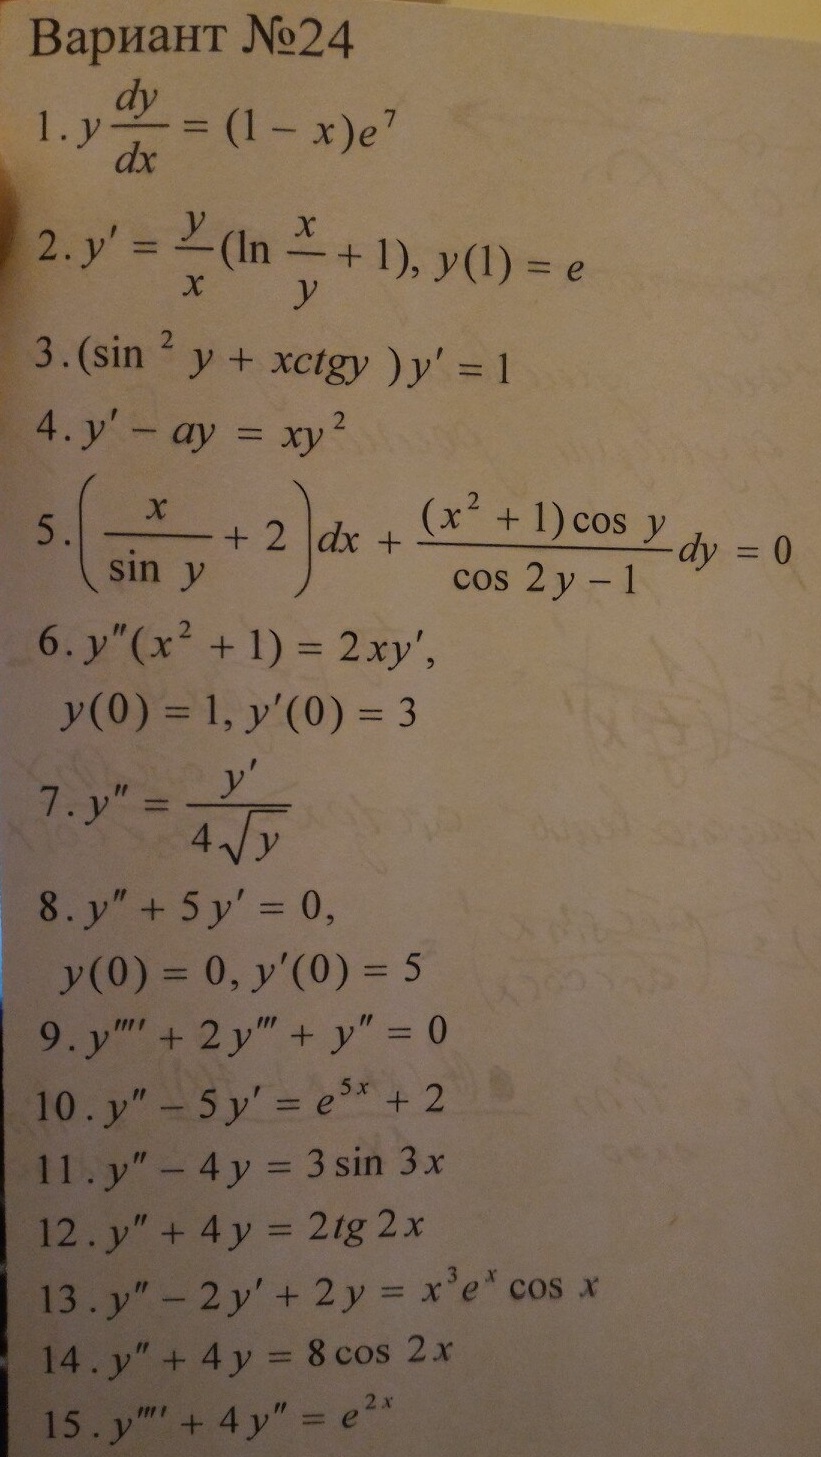 Вариант №24
1. y dy/dx = (1 − x)e⁷
2. y′ = y/x (ln x/y + 1), y(1) = e
3. (sin ² y + xctgy )y′ = 1
4. y′ − ay = xy²
5. (x/sin y + 2) dx + (x² + 1) cos y/cos 2y − 1 dy = 0
6. y″(x² + 1) = 2xy′,
y(0) = 1, y′(0) = 3
7. y″ = y′/4√y
8. y″ + 5y′ = 0,
y(0) = 0, y′(0) = 5
9. y″″ + 2y‴ + y″ = 0
10. y″ − 5y′ = e⁵ˣ + 2
11. y″ − 4y = 3 sin 3x
12. y″ + 4y = 2tg 2x
13. y″ − 2y′ + 2y = x³eˣ cos x
14. y″ + 4y = 8 cos 2x
15. y″″ + 4y″ = e²ˣ